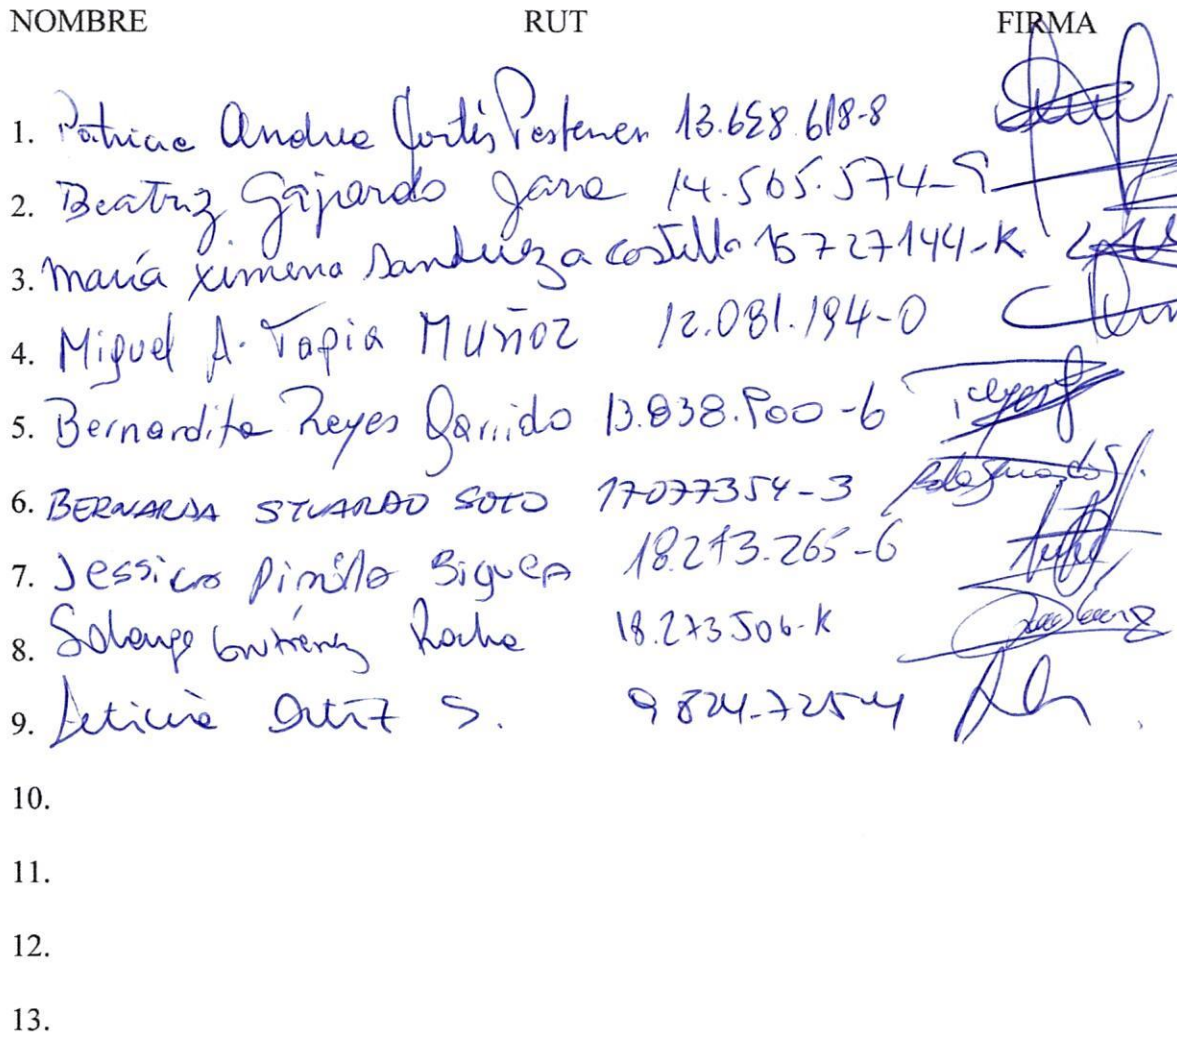 NOMBRE RUT FIRMA
1. Patricia Andrea Cortés 13.658.618-8
2. Beatriz Gajardo Jara 14.565.574-9
3. María Ximena Sandueza Costilla 15727144-K
4. Miguel A. Tapia Muñoz 12.081.194-0
5. Bernardita Reyes Garrido 13.838.900-6
6. BERNARDA STUARDO SOTO 17077354-3
7. Jessica Pinilla 18.273.265-6
8. Solange Gutiérrez Rocha 18.273.506-K
9. Leticia Ortiz S. 9824.725-4
10.
11.
12.
13.